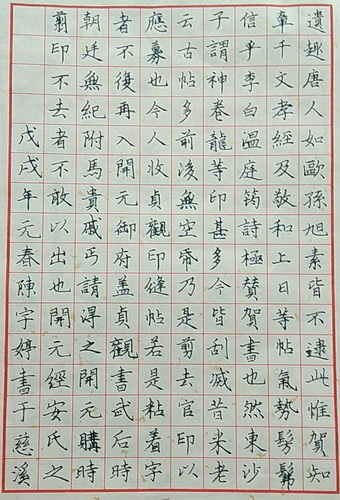 遺趣唐人如歐孫旭素皆不逮此惟賀知
章千文孝經及敬和上日等帖氣勢髣髴
信乎李白溫庭筠詩極贊賀書也然東沙
子謂神卷龍等印甚多今皆刮滅昔米老
云古帖多前後無空帋乃是剪去官印以
應募也今人收貞觀印縫帖若是粘着字
者不復再入開元御府盖貞觀書武后時
朝廷無紀附馬貴戚丐請得之開元購時
剪印不去者不敢以出也開元經安氏之
戊戌年元春陳宇婷書于慈溪